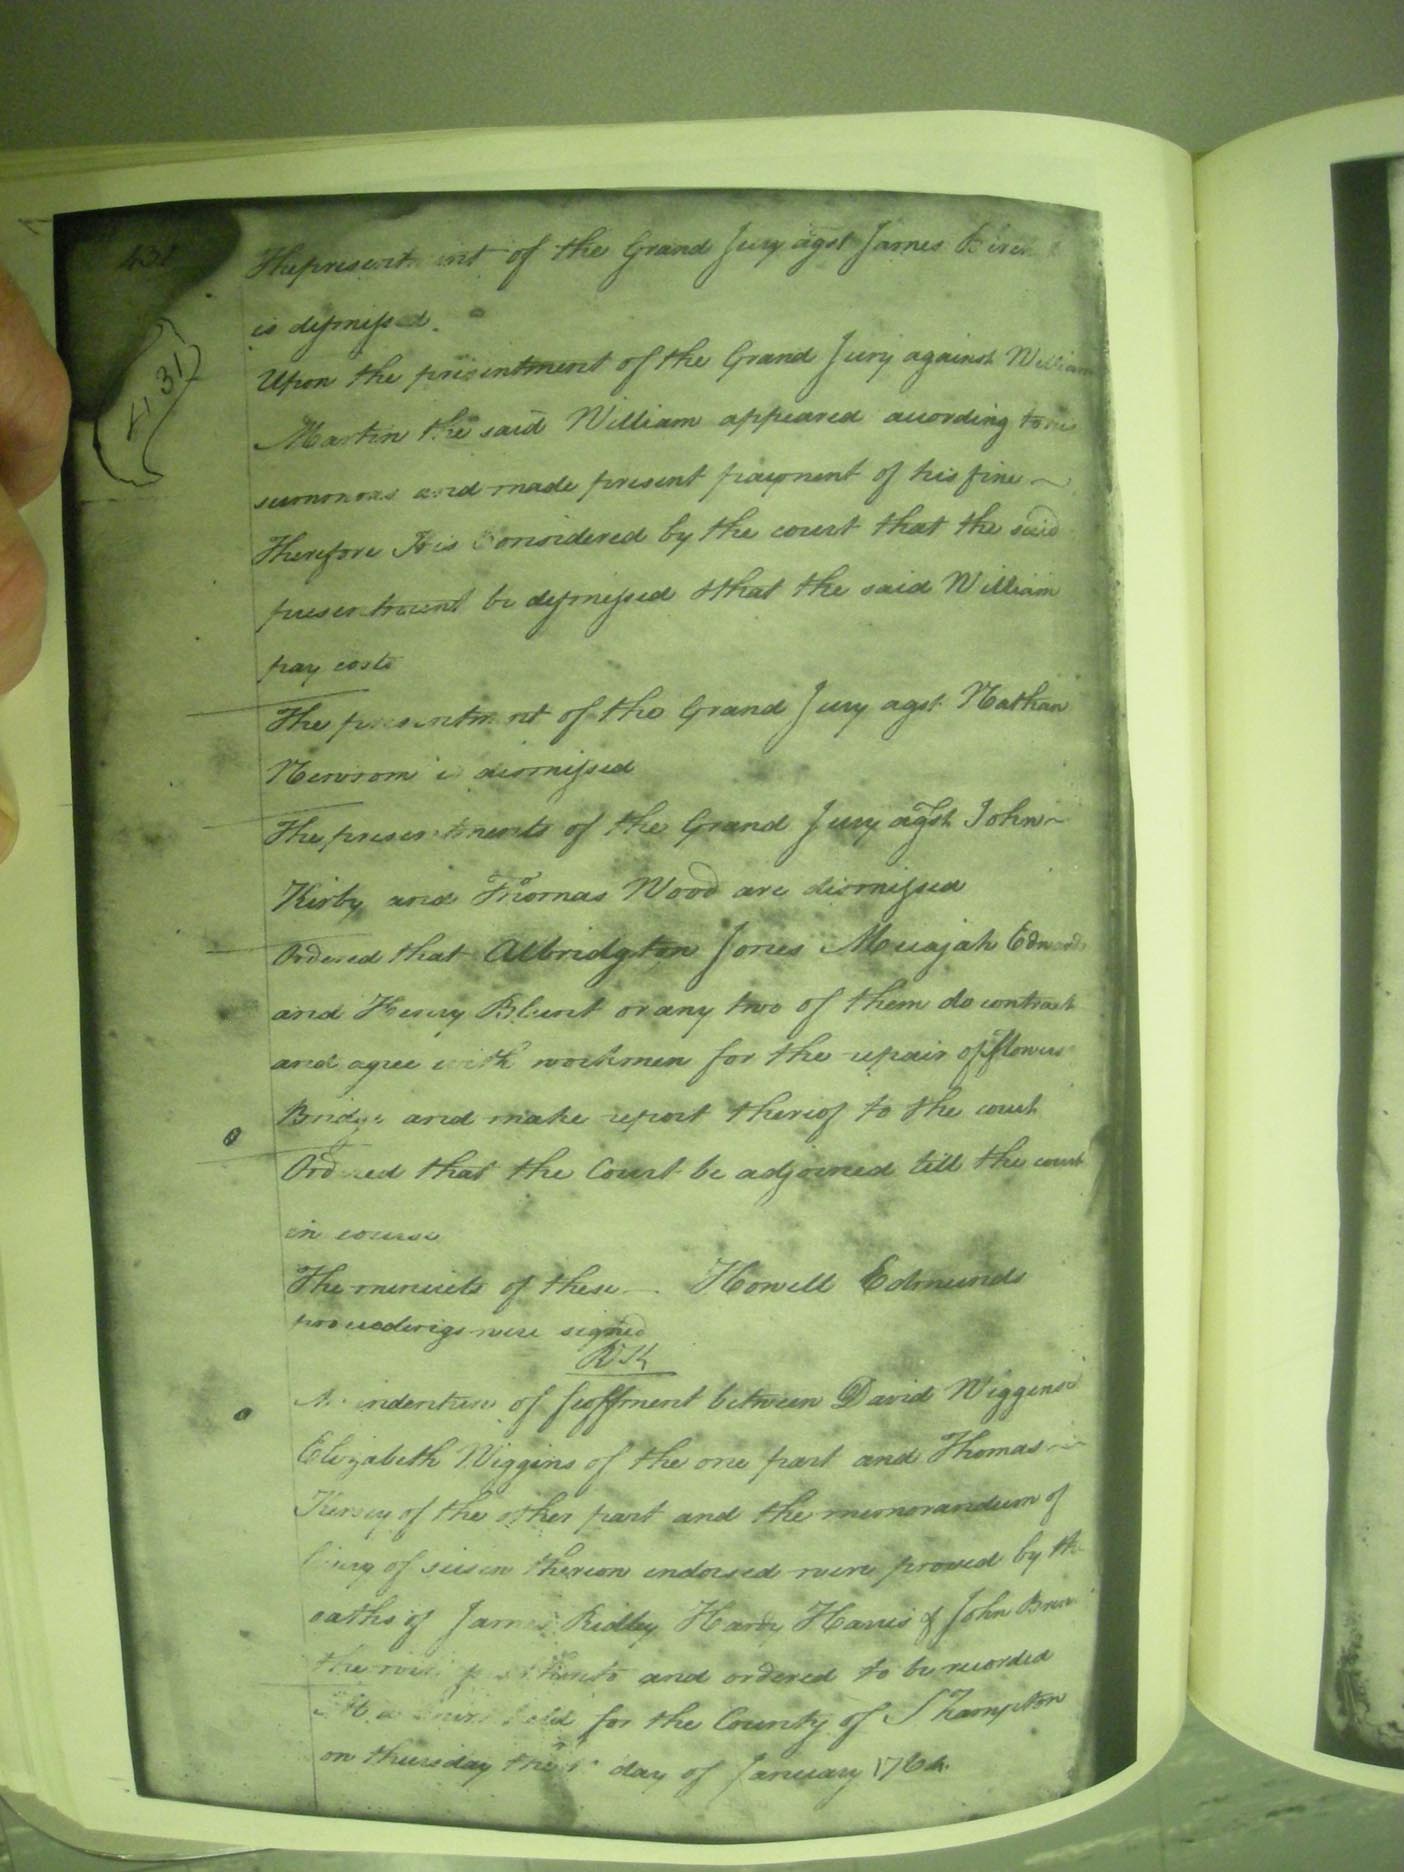 431
431
The presentment of the Grand Jury agst James
is dismissed.
Upon the presentment of the Grand Jury against William
Martin the said William appeared according to his
summons and made present payment of his fine
Therefore It is Considered by the court that the said
presentment be dismissed & that the said William
pay costs
The presentment of the Grand Jury agst Nathan
Newsom is dismissed
The presentments of the Grand Jury agst John
Kirby and Thomas Wood are dismissed
Ordered that Albridgton Jones Micajah Edwards
and Henry Blunt or any two of them do contract
and agree with workmen for the repair of Flowers
Bridge and make report thereof to the court
Ordered that the Court be adjoined till the court
in course
The minuets of these Howell Edmunds
proceedings were signed
R K
An indenture of feoffment between David Wiggins &
Elizabeth Wiggins of the one part and Thomas
Kersey of the other part and the memorandum of
livery of seisin thereon endorsed were proved by the
oaths of James Ridley Hardy Harris & John
the and ordered to be recorded
At a Court held for the County of S hampton
on thursday the day of January 1764